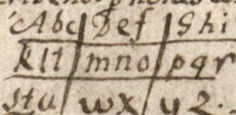 Abc Def Ghi
klt mno pqr
stu wx yz.